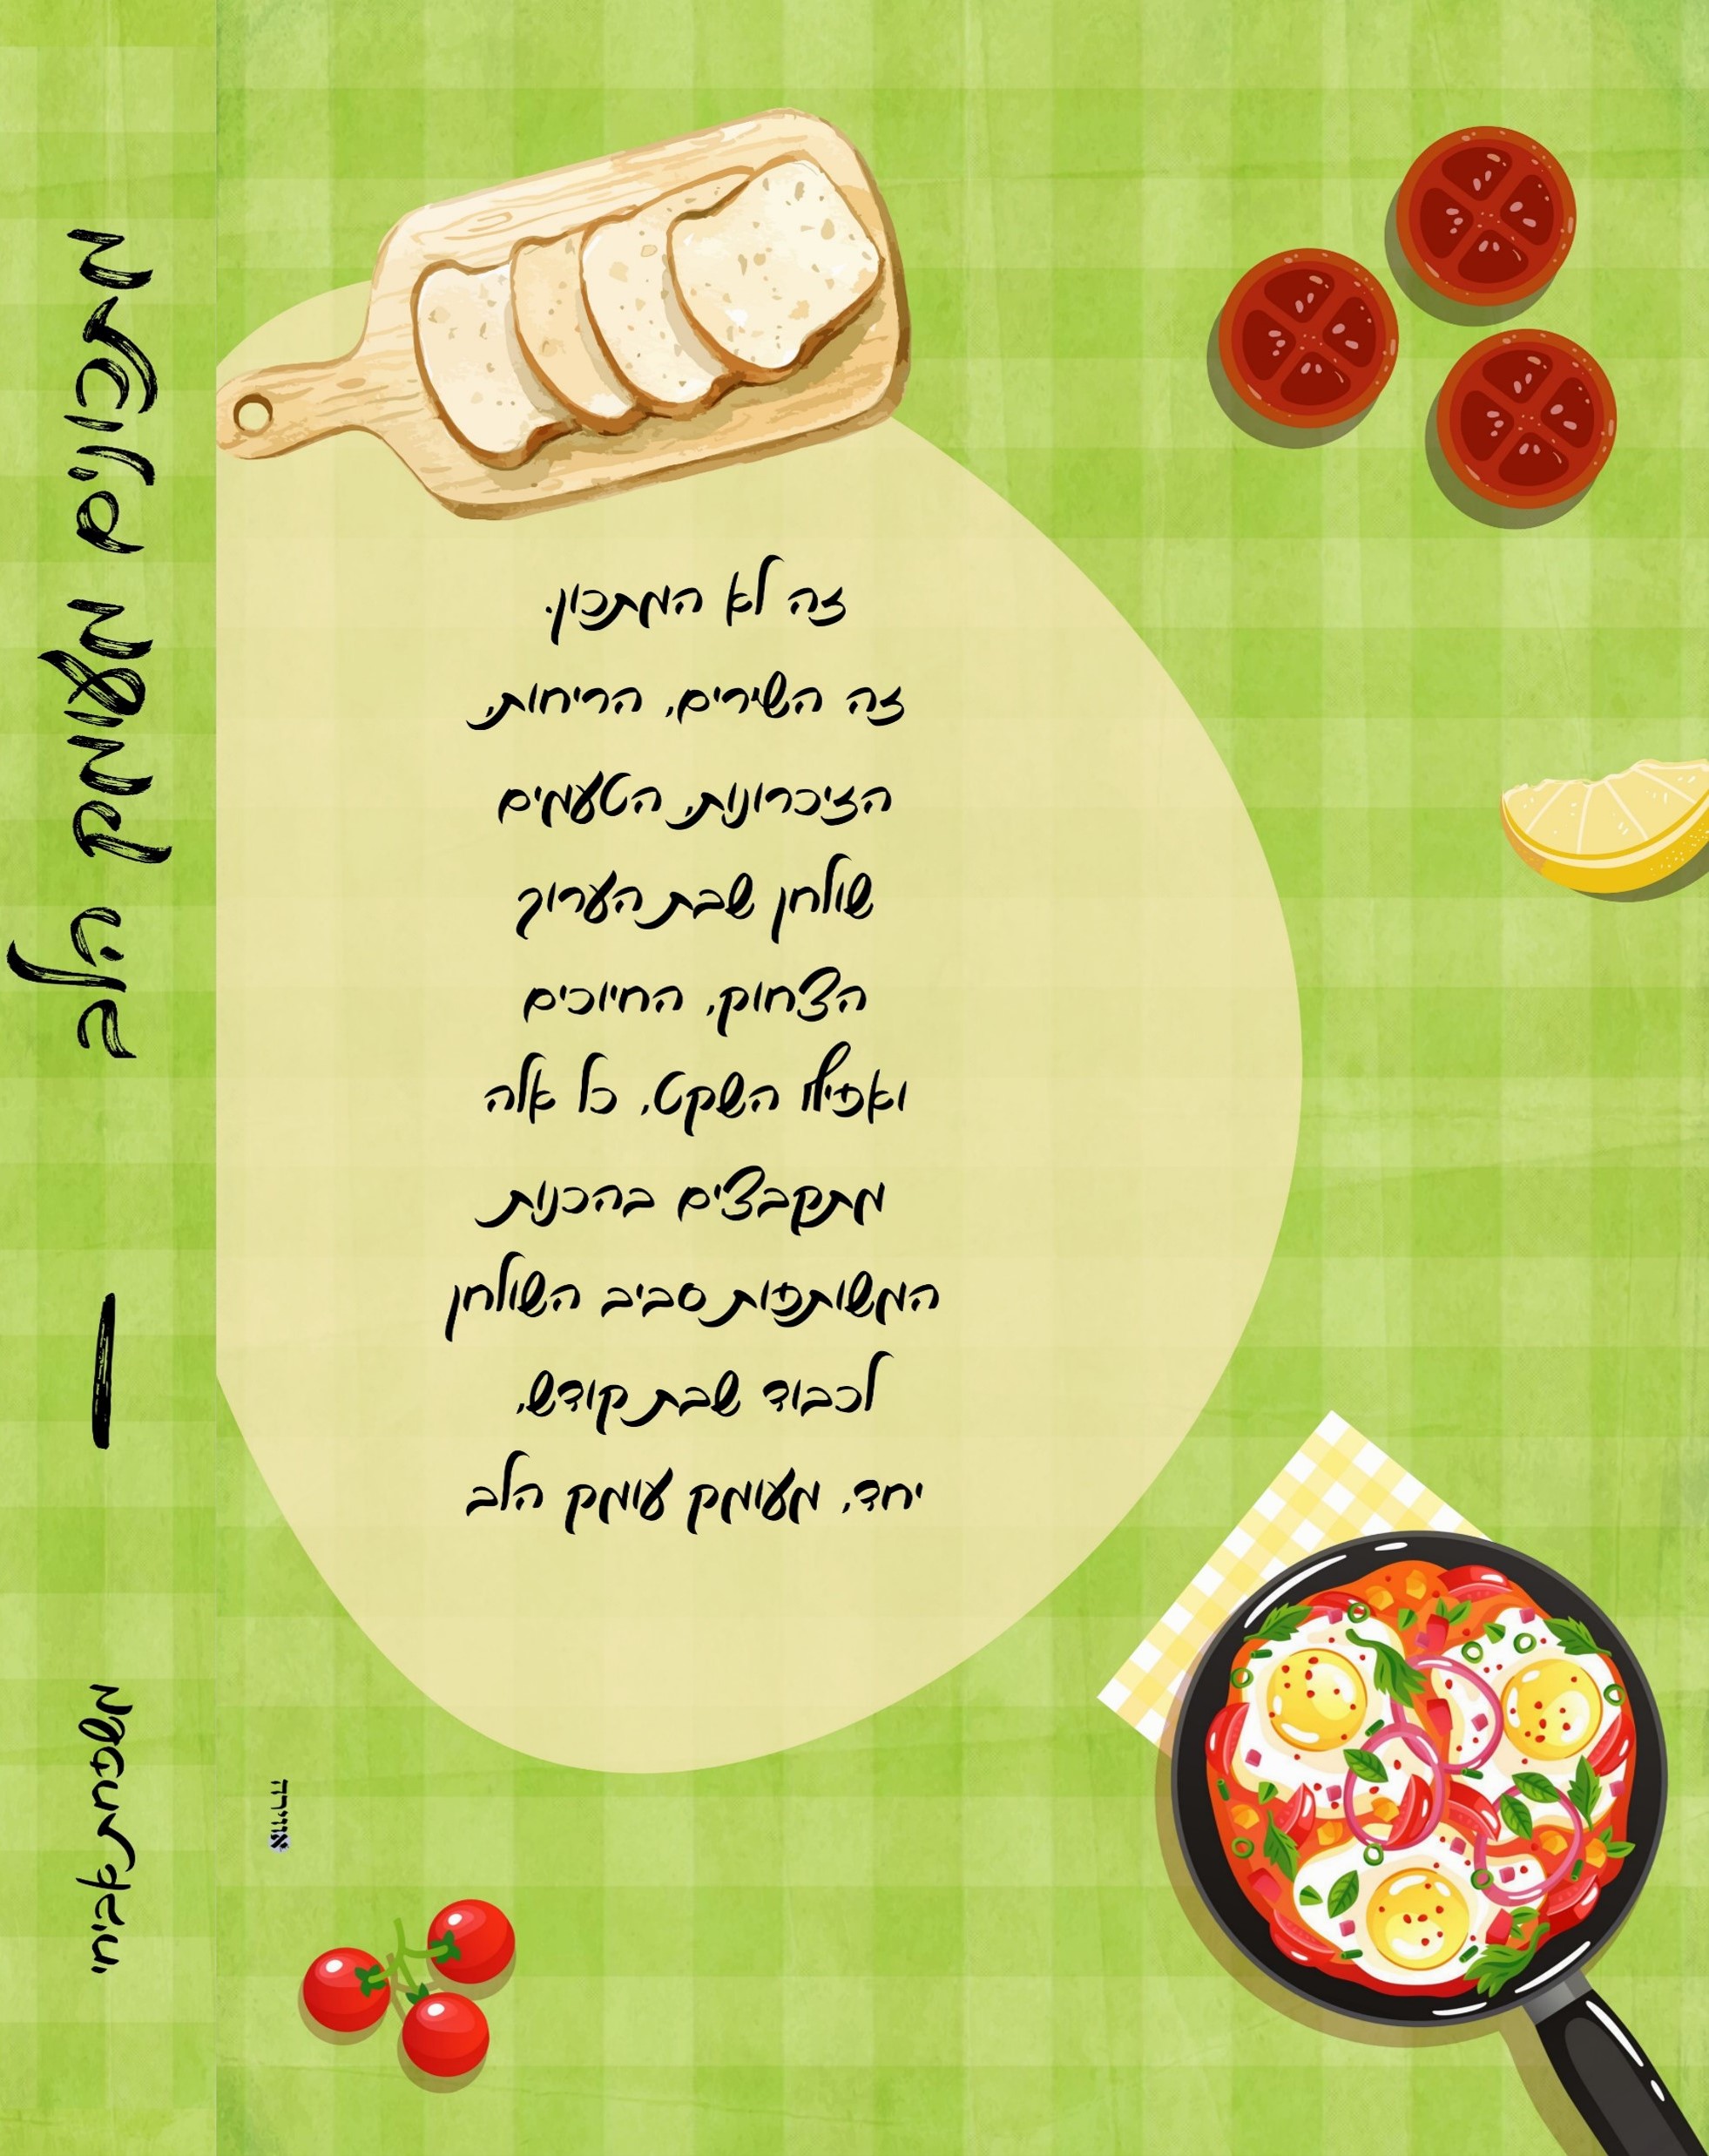 מתכונים מעומק הלב
משפחת אביחי
זה לא המתכון.
זה השירים, הריחות,
הזיכרונות, הטעמים
שולחן שבת הערוך
הצחוק, החיוכים
ואפילו השקט, כל אלה
מתקבצים בהכנות
המשותפות סביב השולחן
לכבוד שבת קודש,
יחד, מעומק עומק הלב